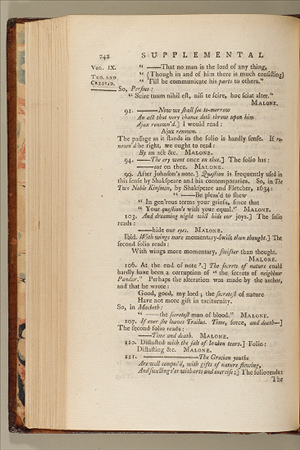 742 SUPPLEMENTAL
VOL. IX.
TRO. AND
CRESSID.
" ——That no man is the lord of any thing,
" (Though in and of him there is much consisting)
" Till he communicate his parts to others."
So, Persius:
" Scire tuum nihil est, nisi te scire, hoc sciat alter."
MALONE.
92. ——Now shall see to-morrow
An act that very chance doth throw upon him
Ajax renown'd.] I would read:
Ajax renown.
The passage as it stands in the folio is hardly sense. If re-
nown'd be right, we ought to read:
By an act &c. MALONE.
94. ——The cry went once on thee.] The folio has:
——out on thee. MALONE.
99. After Johnson's note.] Question is frequently used in
this sense by Shakspeare and his contemporaries. So, in The
Two Noble Kinsmen, by Shakspeare and Fletcher, 1634:
" ——Be pleas'd to shew
" In gen'rous terms your griefs, since that
" Your question's with your equal." MALONE.
103. And dreaming night will hide our joys.] The folio
reads:
——hide our eyes. MALONE.
Ibid. With wings more momentary-swift than thought.] The
second folio reads:
With wings more momentary, swifter than thought.
MALONE.
106. At the end of note .] The secrets of nature could
hardly have been a corruption of " the secrets of neighbour
Pandar." Perhaps the alteration was made by the author,
and that he wrote:
Good, good, my lord; the secretest of nature
Have not more gift in taciturnity.
So, in Macbeth:
" ——the secretest man of blood." MALONE.
107. If ever she leaves Troilus. Time, force, and death—]
The second folio reads:
——Time and death. MALONE.
120. Distasted with the salt of broken tears.] Folio:
Distasting &c. MALONE.
121. ——The Grecian youths
Are well compos'd, with gifts of nature flowing,
And swelling o'er with arts and exercise;] The folio reads:
The